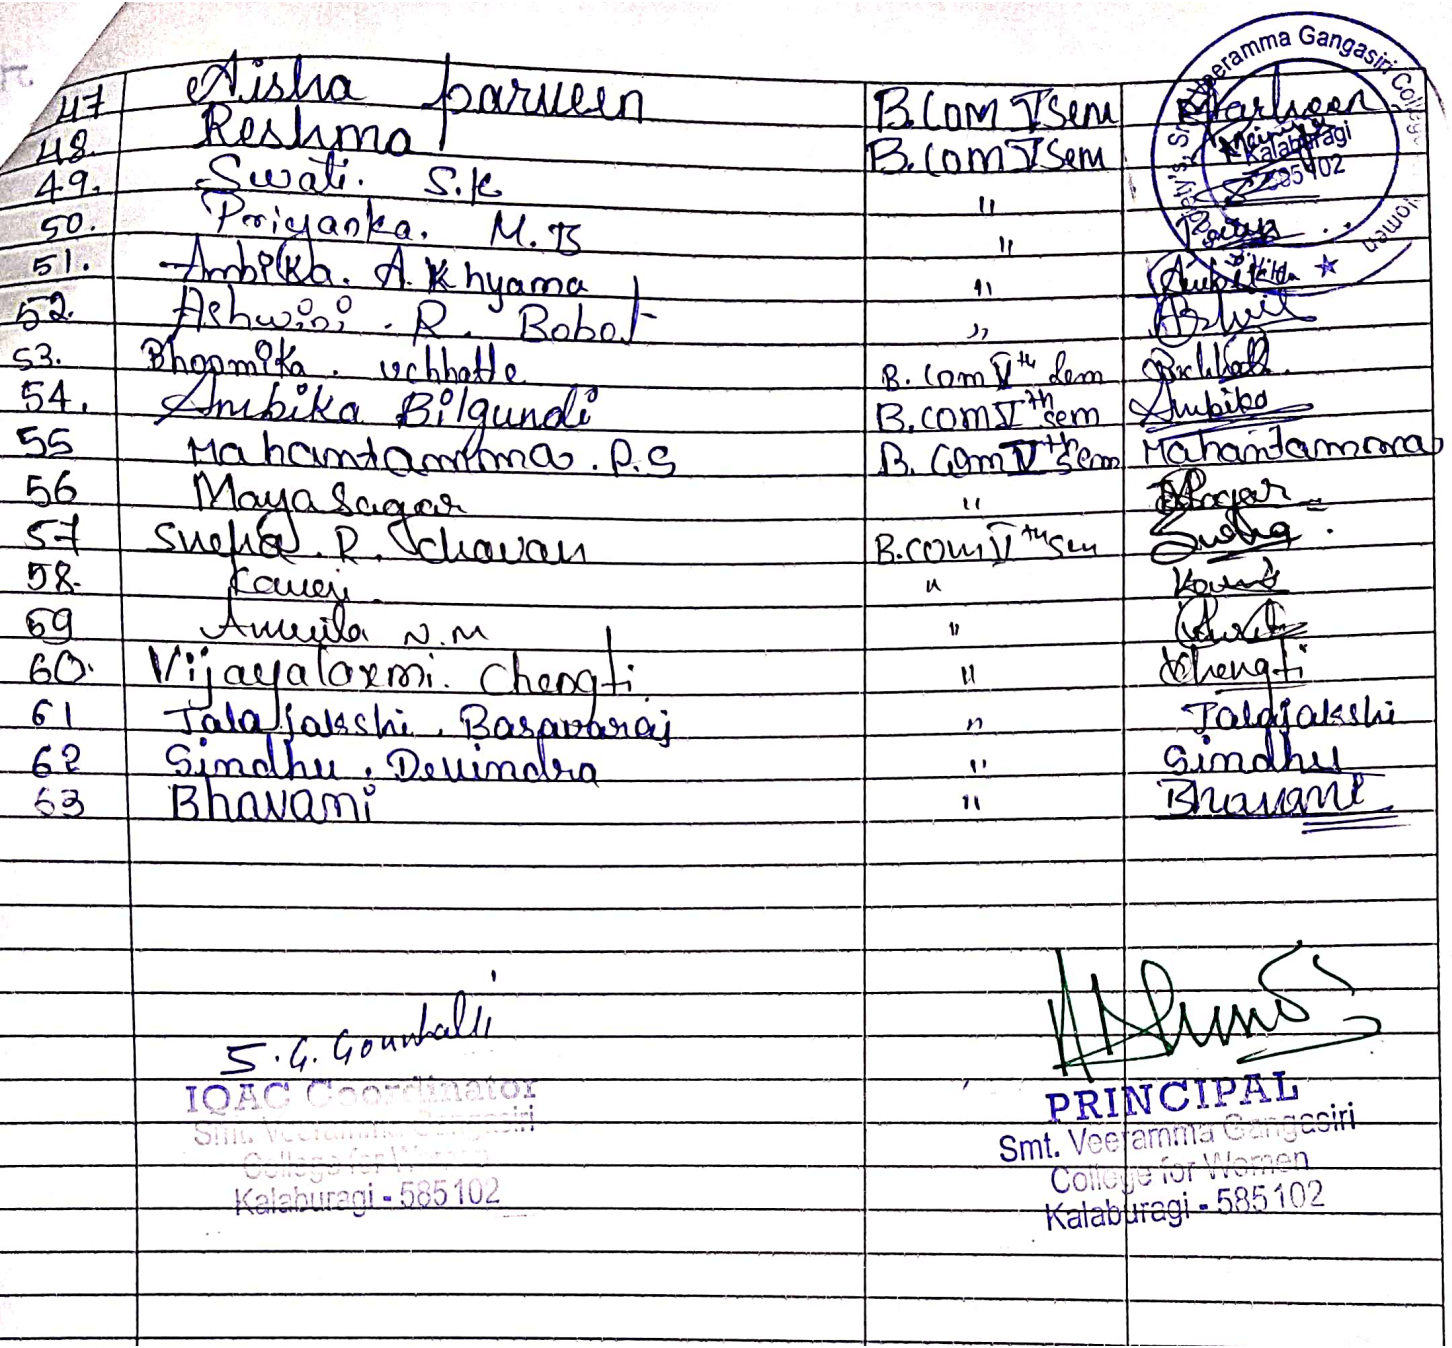 47 Aisha parveen B.Com V sem Parveen
48. Reshma B.Com V Sem
49. Swati. S.K "
50. Priyanka. M.B "
51. Ambika. A. Khyama " Ambika
52. Ashwini. R. Bobot "
53. Bhoomika. uchhatte B. Com Vth Sem
54. Ambika Bilgundi B.com Vth sem Ambika
55 Mahantamma. P.S B. Com Vth Sem Mahantamma
56 Maya Sagar " Sagar
57 Sneha. R. Chavan B.com Vth sem Sneha
58. Kaveri "
59 N.M "
60. Vijayalaxmi. Chengti " Chengti
61 Jalajakshi. Basavaraj " Jalajakshi
62 Sindhu. Devindra " Sindhu
63 Bhavani " Bhavani
Veeramma Gangasiri College Women
Kalaburagi
585102
S. G.
IQAC Coordinator
Smt. Veeramma Gangasiri
College for Women
Kalaburagi - 585102
PRINCIPAL
Smt. Veeramma Gangasiri
College for Women
Kalaburagi - 585102